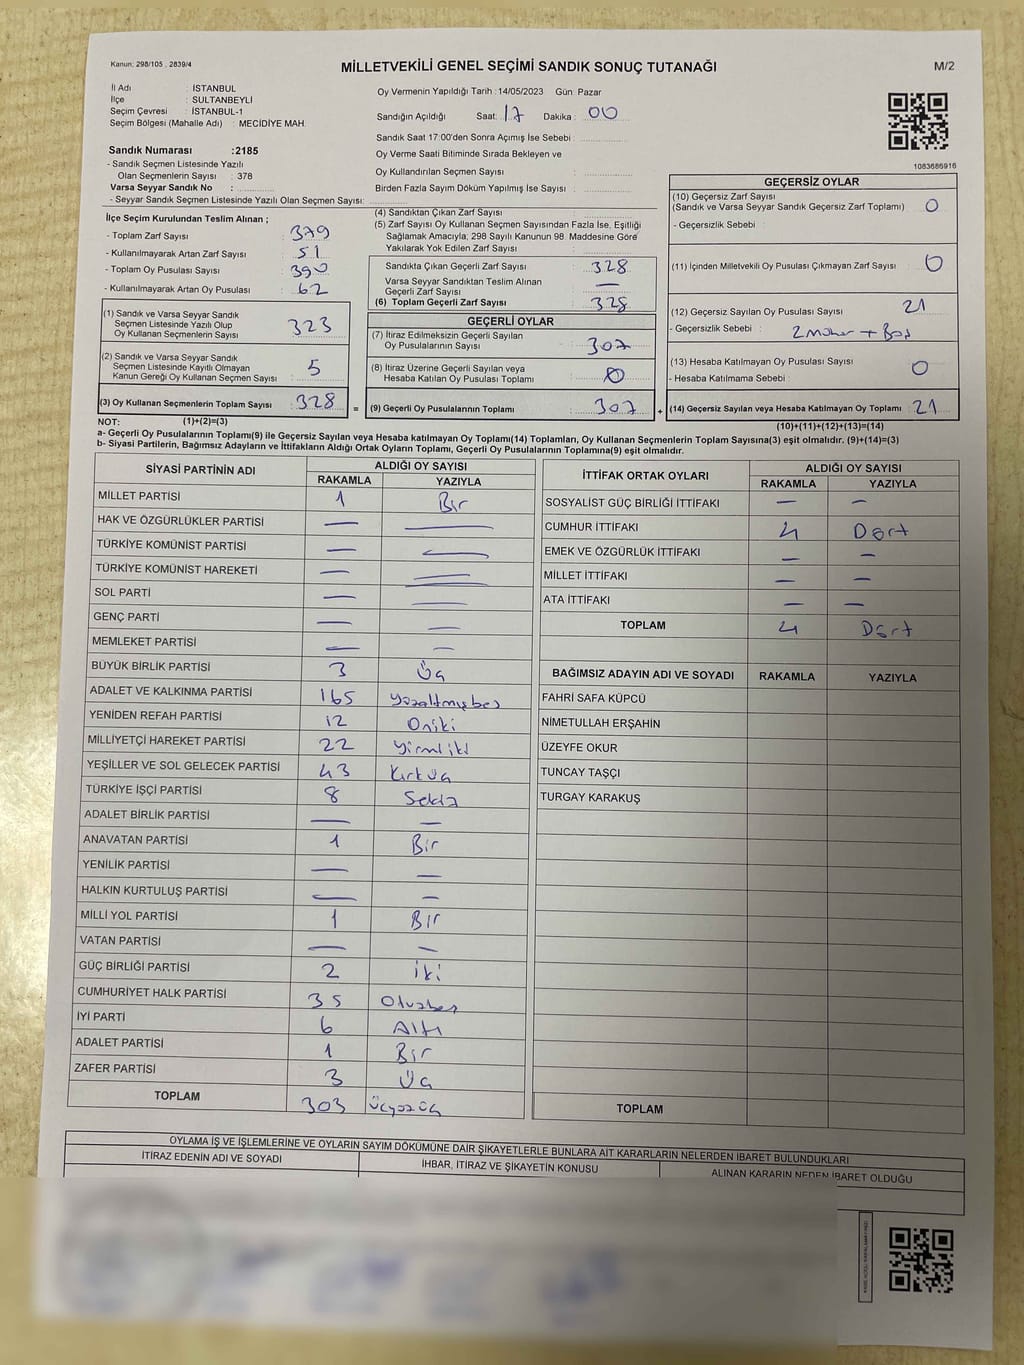 Kanun: 298/105 , 2839/4
MİLLETVEKİLİ GENEL SEÇİMİ SANDIK SONUÇ TUTANAĞI
M/2
İl Adı : İSTANBUL
İlçe : SULTANBEYLİ
Seçim Çevresi : İSTANBUL-1
Seçim Bölgesi (Mahalle Adı) : MECİDİYE MAH.
Sandık Numarası :2185
- Sandık Seçmen Listesinde Yazılı
Olan Seçmenlerin Sayısı : 378
Varsa Seyyar Sandık No :
- Seyyar Sandık Seçmen Listesinde Yazılı Olan Seçmen Sayısı:
Oy Vermenin Yapıldığı Tarih :14/05/2023 Gün Pazar
Sandığın Açıldığı Saat: 17 Dakika : 00
Sandık Saat 17:00'den Sonra Açımış İse Sebebi :
Oy Verme Saati Bitiminde Sırada Bekleyen ve
Oy Kullandırılan Seçmen Sayısı :
Birden Fazla Sayım Döküm Yapılmış İse Sayısı :
1083686916
İlçe Seçim Kurulundan Teslim Alınan ;
- Toplam Zarf Sayısı : 379
- Kullanılmayarak Artan Zarf Sayısı : 51
- Toplam Oy Pusulası Sayısı : 390
- Kullanılmayarak Artan Oy Pusulası : 62
(1) Sandık ve Varsa Seyyar Sandık
Seçmen Listesinde Yazılı Olup
Oy Kullanan Seçmenlerin Sayısı : 323
(2) Sandık ve Varsa Seyyar Sandık
Seçmen Listesinde Kayıtlı Olmayan
Kanun Gereği Oy Kullanan Seçmen Sayısı : 5
(3) Oy Kullanan Seçmenlerin Toplam Sayısı : 328
(1)+(2)=(3)
(4) Sandıktan Çıkan Zarf Sayısı :
(5) Zarf Sayısı Oy Kullanan Seçmen Sayısından Fazla İse, Eşitliği
Sağlamak Amacıyla; 298 Sayılı Kanunun 98. Maddesine Göre
Yakılarak Yok Edilen Zarf Sayısı :
Sandıkta Çıkan Geçerli Zarf Sayısı : 328
Varsa Seyyar Sandıktan Teslim Alınan
Geçerli Zarf Sayısı : —
(6) Toplam Geçerli Zarf Sayısı : 328
GEÇERLİ OYLAR
(7) İtiraz Edilmeksizin Geçerli Sayılan
Oy Pusulalarının Sayısı : 307
(8) İtiraz Üzerine Geçerli Sayılan veya
Hesaba Katılan Oy Pusulası Toplamı : 0
= (9) Geçerli Oy Pusulalarının Toplamı : 307
GEÇERSİZ OYLAR
(10) Geçersiz Zarf Sayısı
(Sandık ve Varsa Seyyar Sandık Geçersiz Zarf Toplamı) : 0
- Geçersizlik Sebebi :
(11) İçinden Milletvekili Oy Pusulası Çıkmayan Zarf Sayısı : 0
(12) Geçersiz Sayılan Oy Pusulası Sayısı : 21
- Geçersizlik Sebebi : 2 Mühür + Boş
(13) Hesaba Katılmayan Oy Pusulası Sayısı : 0
- Hesaba Katılmama Sebebi :
+ (14) Geçersiz Sayılan veya Hesaba Katılmayan Oy Toplamı : 21
(10)+(11)+(12)+(13)=(14)
NOT:
a- Geçerli Oy Pusulalarının Toplamı(9) ile Geçersiz Sayılan veya Hesaba katılmayan Oy Toplamı(14) Toplamları, Oy Kullanan Seçmenlerin Toplam Sayısına(3) eşit olmalıdır. (9)+(14)=(3)
b- Siyasi Partilerin, Bağımsız Adayların ve İttifakların Aldığı Ortak Oyların Toplamı, Geçerli Oy Pusulalarının Toplamına(9) eşit olmalıdır.
SİYASİ PARTİNİN ADI
ALDIĞI OY SAYISI
RAKAMLA YAZIYLA
MİLLET PARTİSİ 1 Bir
HAK VE ÖZGÜRLÜKLER PARTİSİ — —
TÜRKİYE KOMÜNİST PARTİSİ — —
TÜRKİYE KOMÜNİST HAREKETİ — —
SOL PARTİ — —
GENÇ PARTİ — —
MEMLEKET PARTİSİ — —
BÜYÜK BİRLİK PARTİSİ 3 Üç
ADALET VE KALKINMA PARTİSİ 165 Yüzaltmışbeş
YENİDEN REFAH PARTİSİ 12 Oniki
MİLLİYETÇİ HAREKET PARTİSİ 22 Yirmiiki
YEŞİLLER VE SOL GELECEK PARTİSİ 43 Kırküç
TÜRKİYE İŞÇİ PARTİSİ 8 Sekiz
ADALET BİRLİK PARTİSİ — —
ANAVATAN PARTİSİ 1 Bir
YENİLİK PARTİSİ — —
HALKIN KURTULUŞ PARTİSİ — —
MİLLİ YOL PARTİSİ 1 Bir
VATAN PARTİSİ — —
GÜÇ BİRLİĞİ PARTİSİ 2 İki
CUMHURİYET HALK PARTİSİ 35 Otuzbeş
İYİ PARTİ 6 Altı
ADALET PARTİSİ 1 Bir
ZAFER PARTİSİ 3 Üç
TOPLAM 303 Üçyüzüç
İTTİFAK ORTAK OYLARI
ALDIĞI OY SAYISI
RAKAMLA YAZIYLA
SOSYALİST GÜÇ BİRLİĞİ İTTİFAKI — —
CUMHUR İTTİFAKI 4 Dört
EMEK VE ÖZGÜRLÜK İTTİFAKI — —
MİLLET İTTİFAKI — —
ATA İTTİFAKI — —
TOPLAM 4 Dört
BAĞIMSIZ ADAYIN ADI VE SOYADI RAKAMLA YAZIYLA
FAHRİ SAFA KÜPCÜ
NİMETULLAH ERŞAHİN
ÜZEYFE OKUR
TUNCAY TAŞÇI
TURGAY KARAKUŞ
TOPLAM
OYLAMA İŞ VE İŞLEMLERİNE VE OYLARIN SAYIM DÖKÜMÜNE DAİR ŞİKAYETLERLE BUNLARA AİT KARARLARIN NELERDEN İBARET BULUNDUKLARI
İTİRAZ EDENİN ADI VE SOYADI
İHBAR, İTİRAZ VE ŞİKAYETİN KONUSU
ALINAN KARARIN NEDEN İBARET OLDUĞU